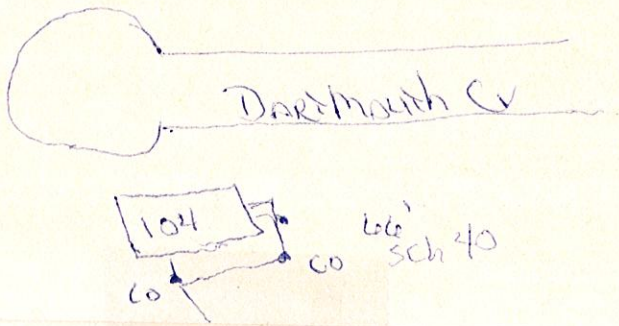 Dartmouth Cv
104
66'
Sch 40
CO
CO